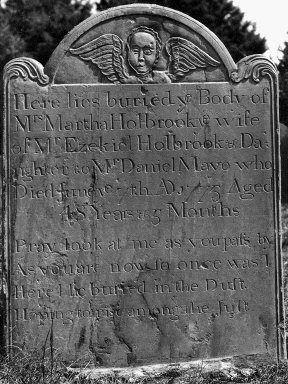 Here lies buried yᵉ Body of
Mʳˢ Martha Holbrook yᵉ wife
of Mʳ Ezekiel Holbrook & Da
ughter to Mʳ Daniel Mayo who
Died June 7th AD Aged
48 Years & 3 Months
Pray look at me as you pass by
As you are now so once was I
Here I lie buried in the Dust
Hoping to rise among the Just